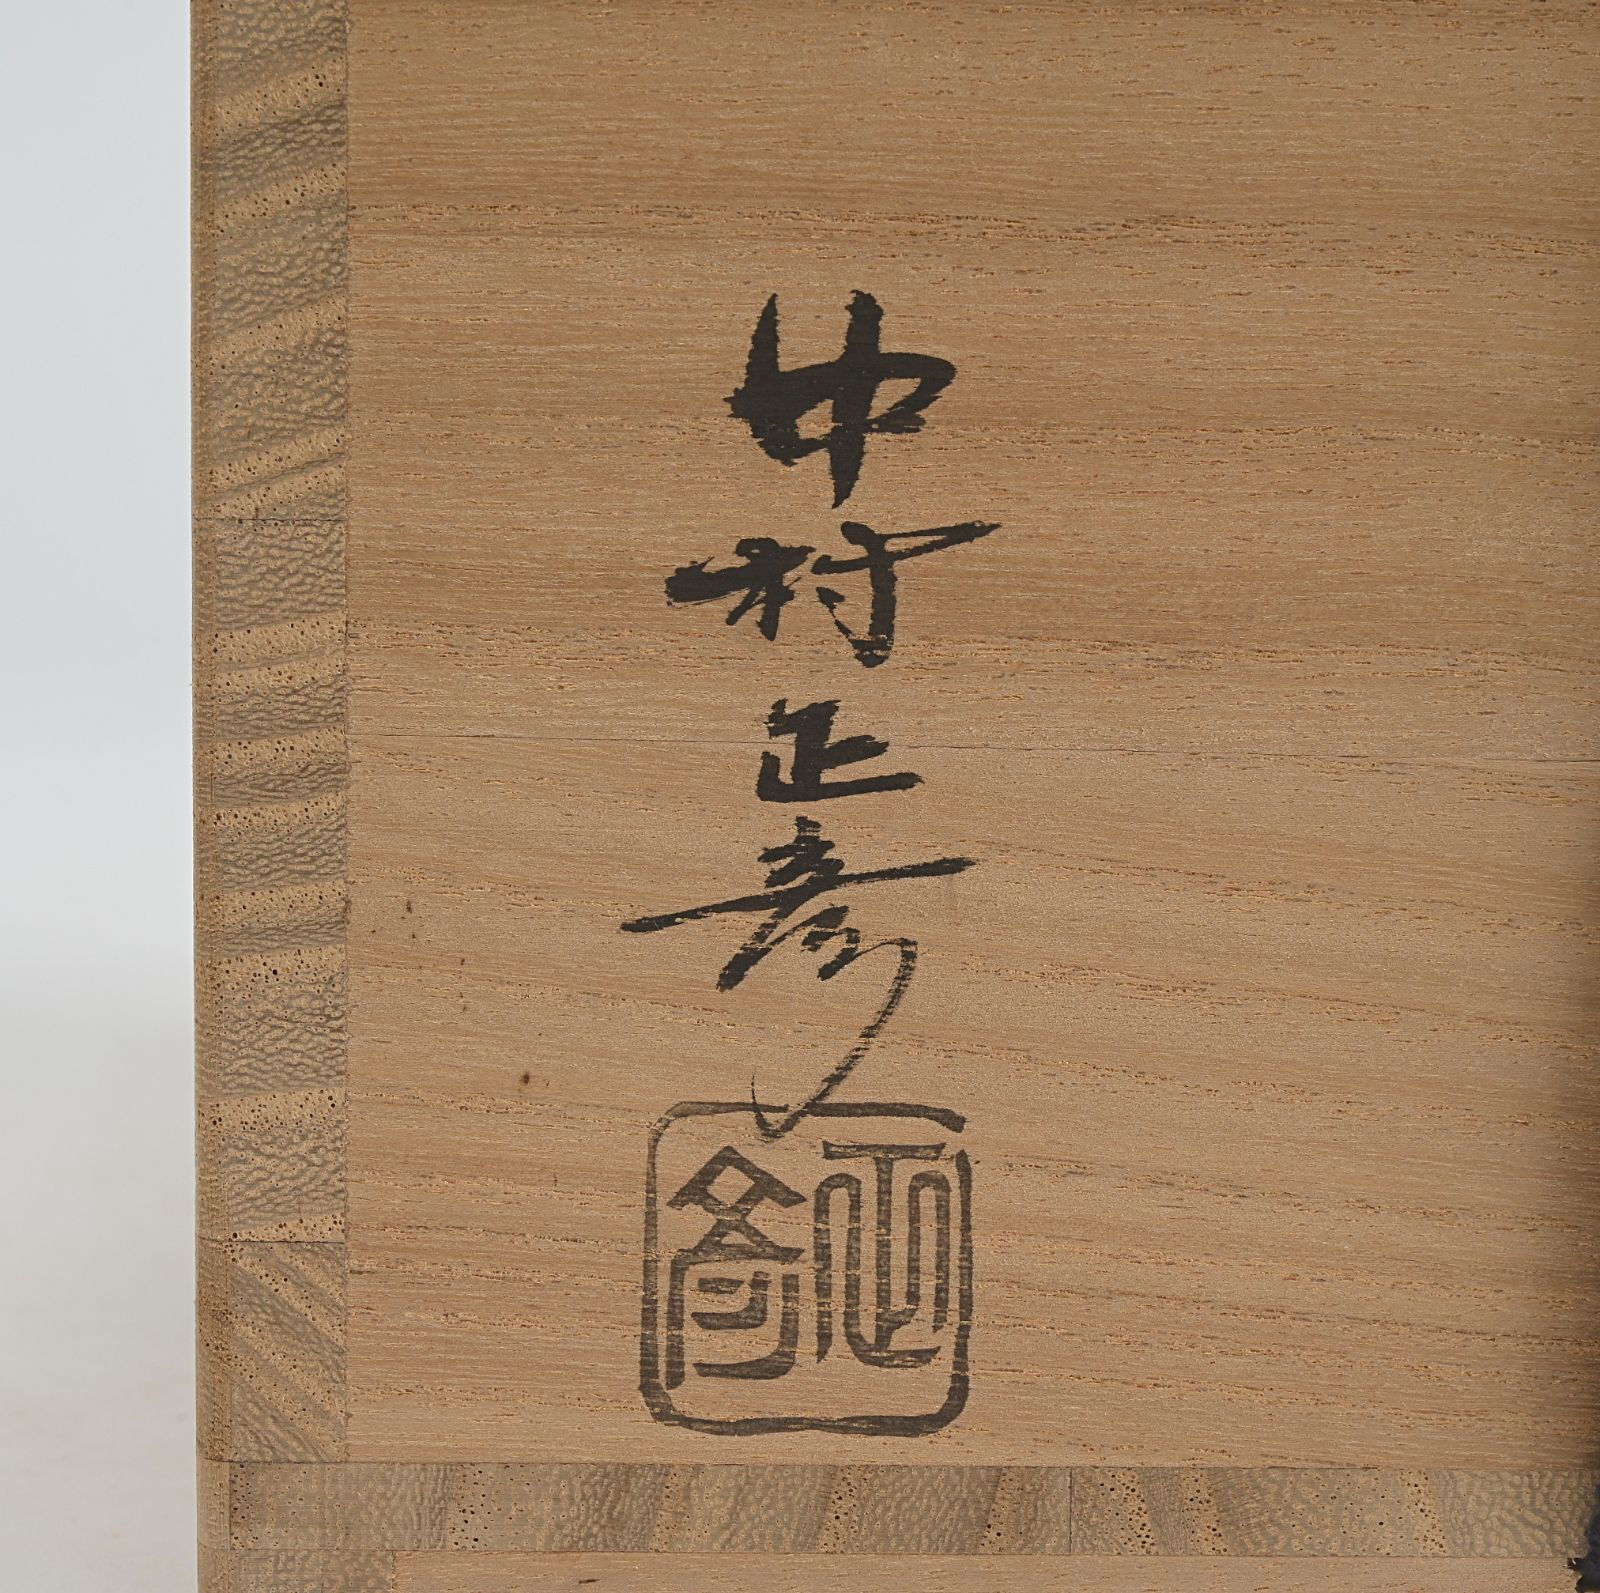 中村正彦